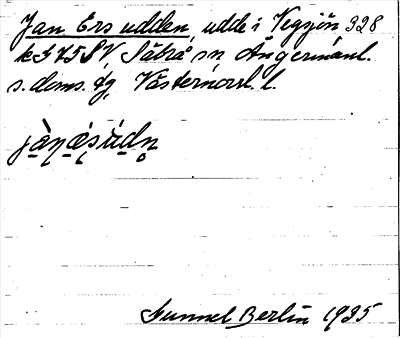 Jan Ers udden, udde i Vegsjön 328
k 575 SV, Såtrå sn Ångermanl.
s. doms. dg, Västernorrl. l.
Gunnel Berlin 1935